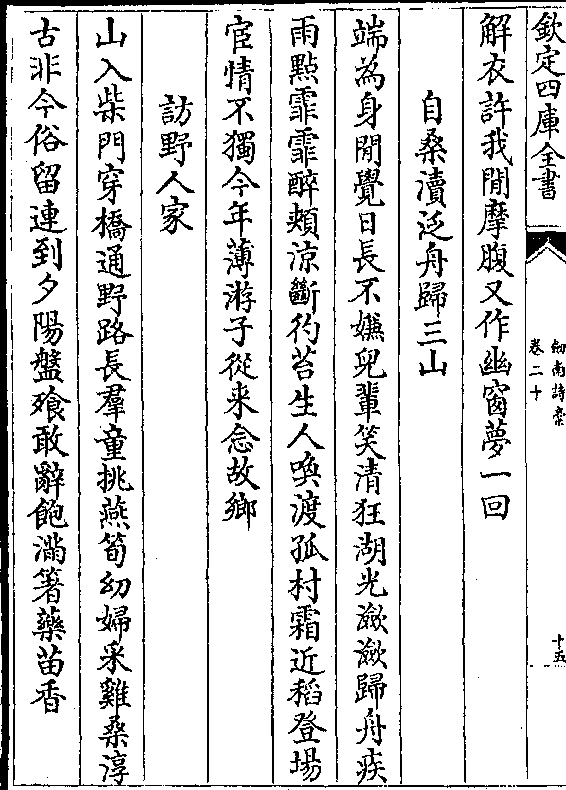 欽定四庫全書
劍南詩稾
卷二十
十五
解衣許我閒摩腹又作幽窗夢一回
自桑瀆泛舟歸三山
端為身閒覺日長不嫌兒輩笑清狂湖光瀲瀲歸舟疾
雨點霏霏醉頰涼斷彴苔生人喚渡孤村霜近稻登場
宦情不獨今年薄游子從来念故鄉
訪野人家
山入柴門穿橋通野路長羣童挑燕筍幼婦采雞桑淳
古非今俗留連到夕陽盤飱敢辭飽滿箸藥苗香